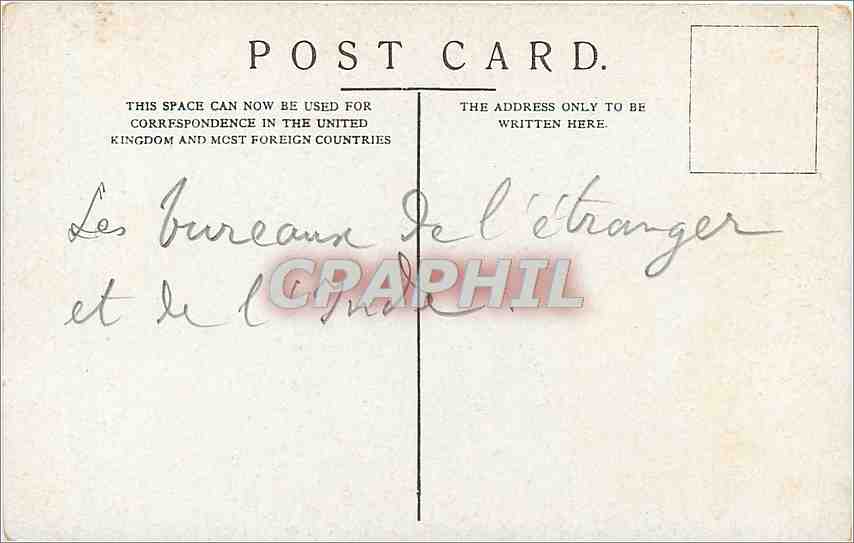 POST CARD.
THIS SPACE CAN NOW BE USED FOR
CORRESPONDENCE IN THE UNITED
KINGDOM AND MOST FOREIGN COUNTRIES
THE ADDRESS ONLY TO BE
WRITTEN HERE.
Les bureaux de l'étranger
et de l'Inde.
CPAPHIL